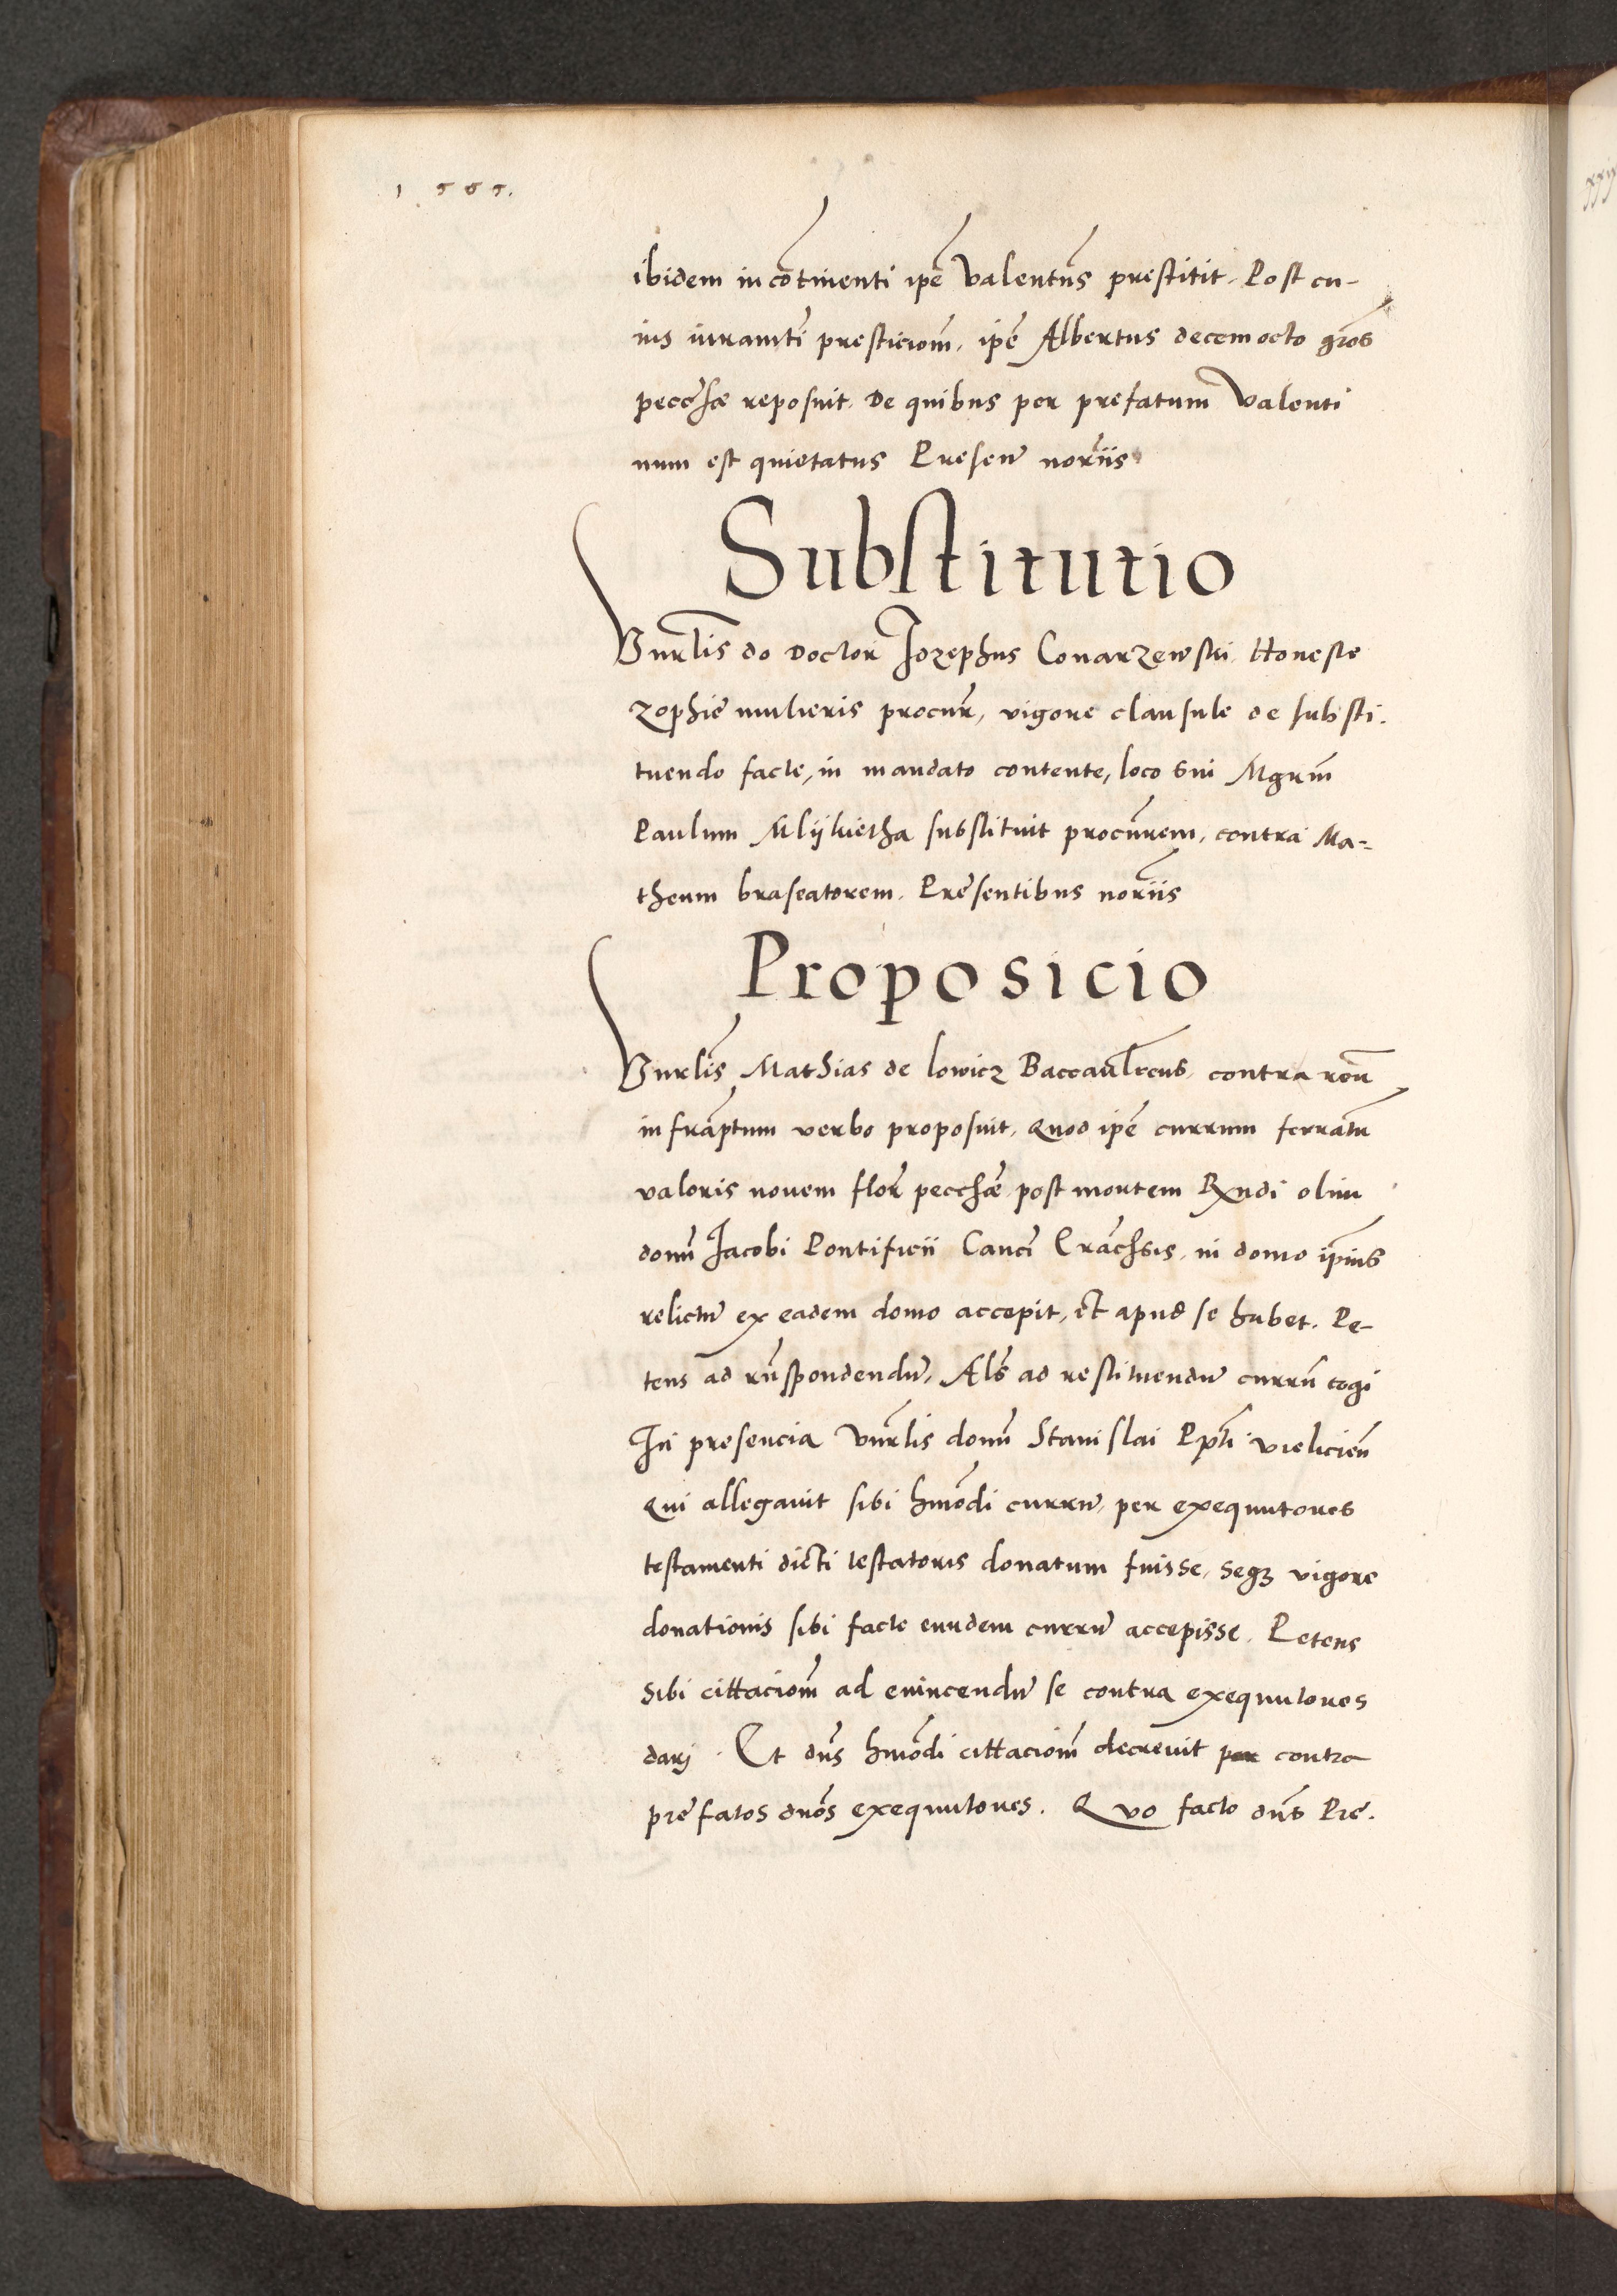 1555.
ibidem incōtinenti ipē Valentūs prestitit. Post cu-
ius iuramēti presticiom̄, ipē Albertus decem octo gr̄os
pecc̄hæ reposuit, de quibus per prefatum Valenti
num est quietatus Presen̄ nor̄iis
Substitutio
Vn̄rlis do doctor Jozephus Conarzewski, Honeste
zophie mulieris procur̄, vigore clausule de substi-
tuendo facte, in mandato contente, loco sui Mgr̄m
Paulum Mlijkietha substituit procūrem, contra Ma-
theum braseatorem. Presentibus nor̄iis
Proposicio
Vn̄rlis Mathias de lowicz Baccaul̄reus, contra reū
infrāptum verbo proposuit, Quod ipē currum ferratū
valoris nouem flor̄ pecc̄hæ post mortem Rn̄di olim
domī Jacobi Pontificii Canc̄i Crac̄hsis, in domo ip̄ius
relictū ex eadem domo accepit, et apud se habet. Pe-
tens ad rn̄spondendū, Als̄ ad restituendū currū cogi
In presencia Vn̄rlis domī Stanislai Pp̄ti vielicien̄
Qui allegauit sibi hmōdi currū, per exequutores
testamenti dicti testatoris donatum fuisse, seq3 vigore
donationis sibi facte eundem currū accepisse. Petens
sibi cittaciom̄ ad euincendū se contra exequutores
darj. Et dn̄s hmōdi cittaciom̄ decreuit per contra
prefatos dn̄os exequutores. Quo facto dn̄s Pre-
xxij